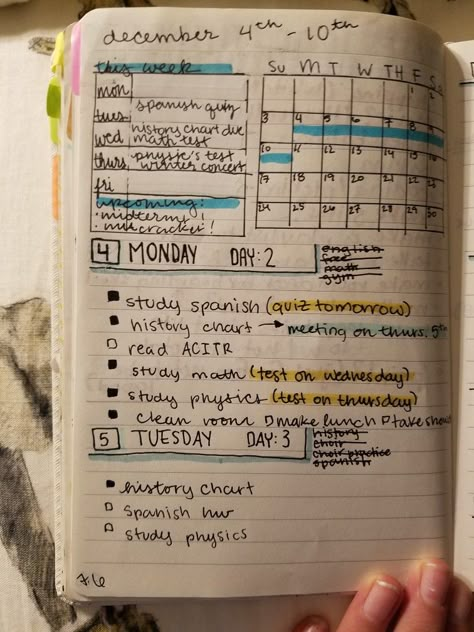 december 4th - 10th
this week
mon
spanish quiz
tues
history chart due
wed math test
physic's test
thurs winter concert
fri
upcoming:
· midterms!
· nutcracker!
Su M T W TH F Sa
1 2
3 4 5 6 7 8 9
10 11 12 13 14 15
17 18 19 20 21 22
24 25 26 27 28 29 30
4 MONDAY DAY: 2
english
free
math
gym
study spanish (quiz tomorrow)
history chart → meeting on thurs. 5th
read ACITR
study math (test on wednesday)
study physics (test on thursday)
clean room make lunch take show
5 TUESDAY DAY: 3
history
choir
choir practice
spanish
history chart
spanish hw
study physics